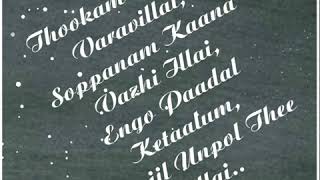 Thookam
Varavillai,
Soppanam Kaana
Vazhi Illai,
Engo Paadal
Ketaalum,
Unpol Thee